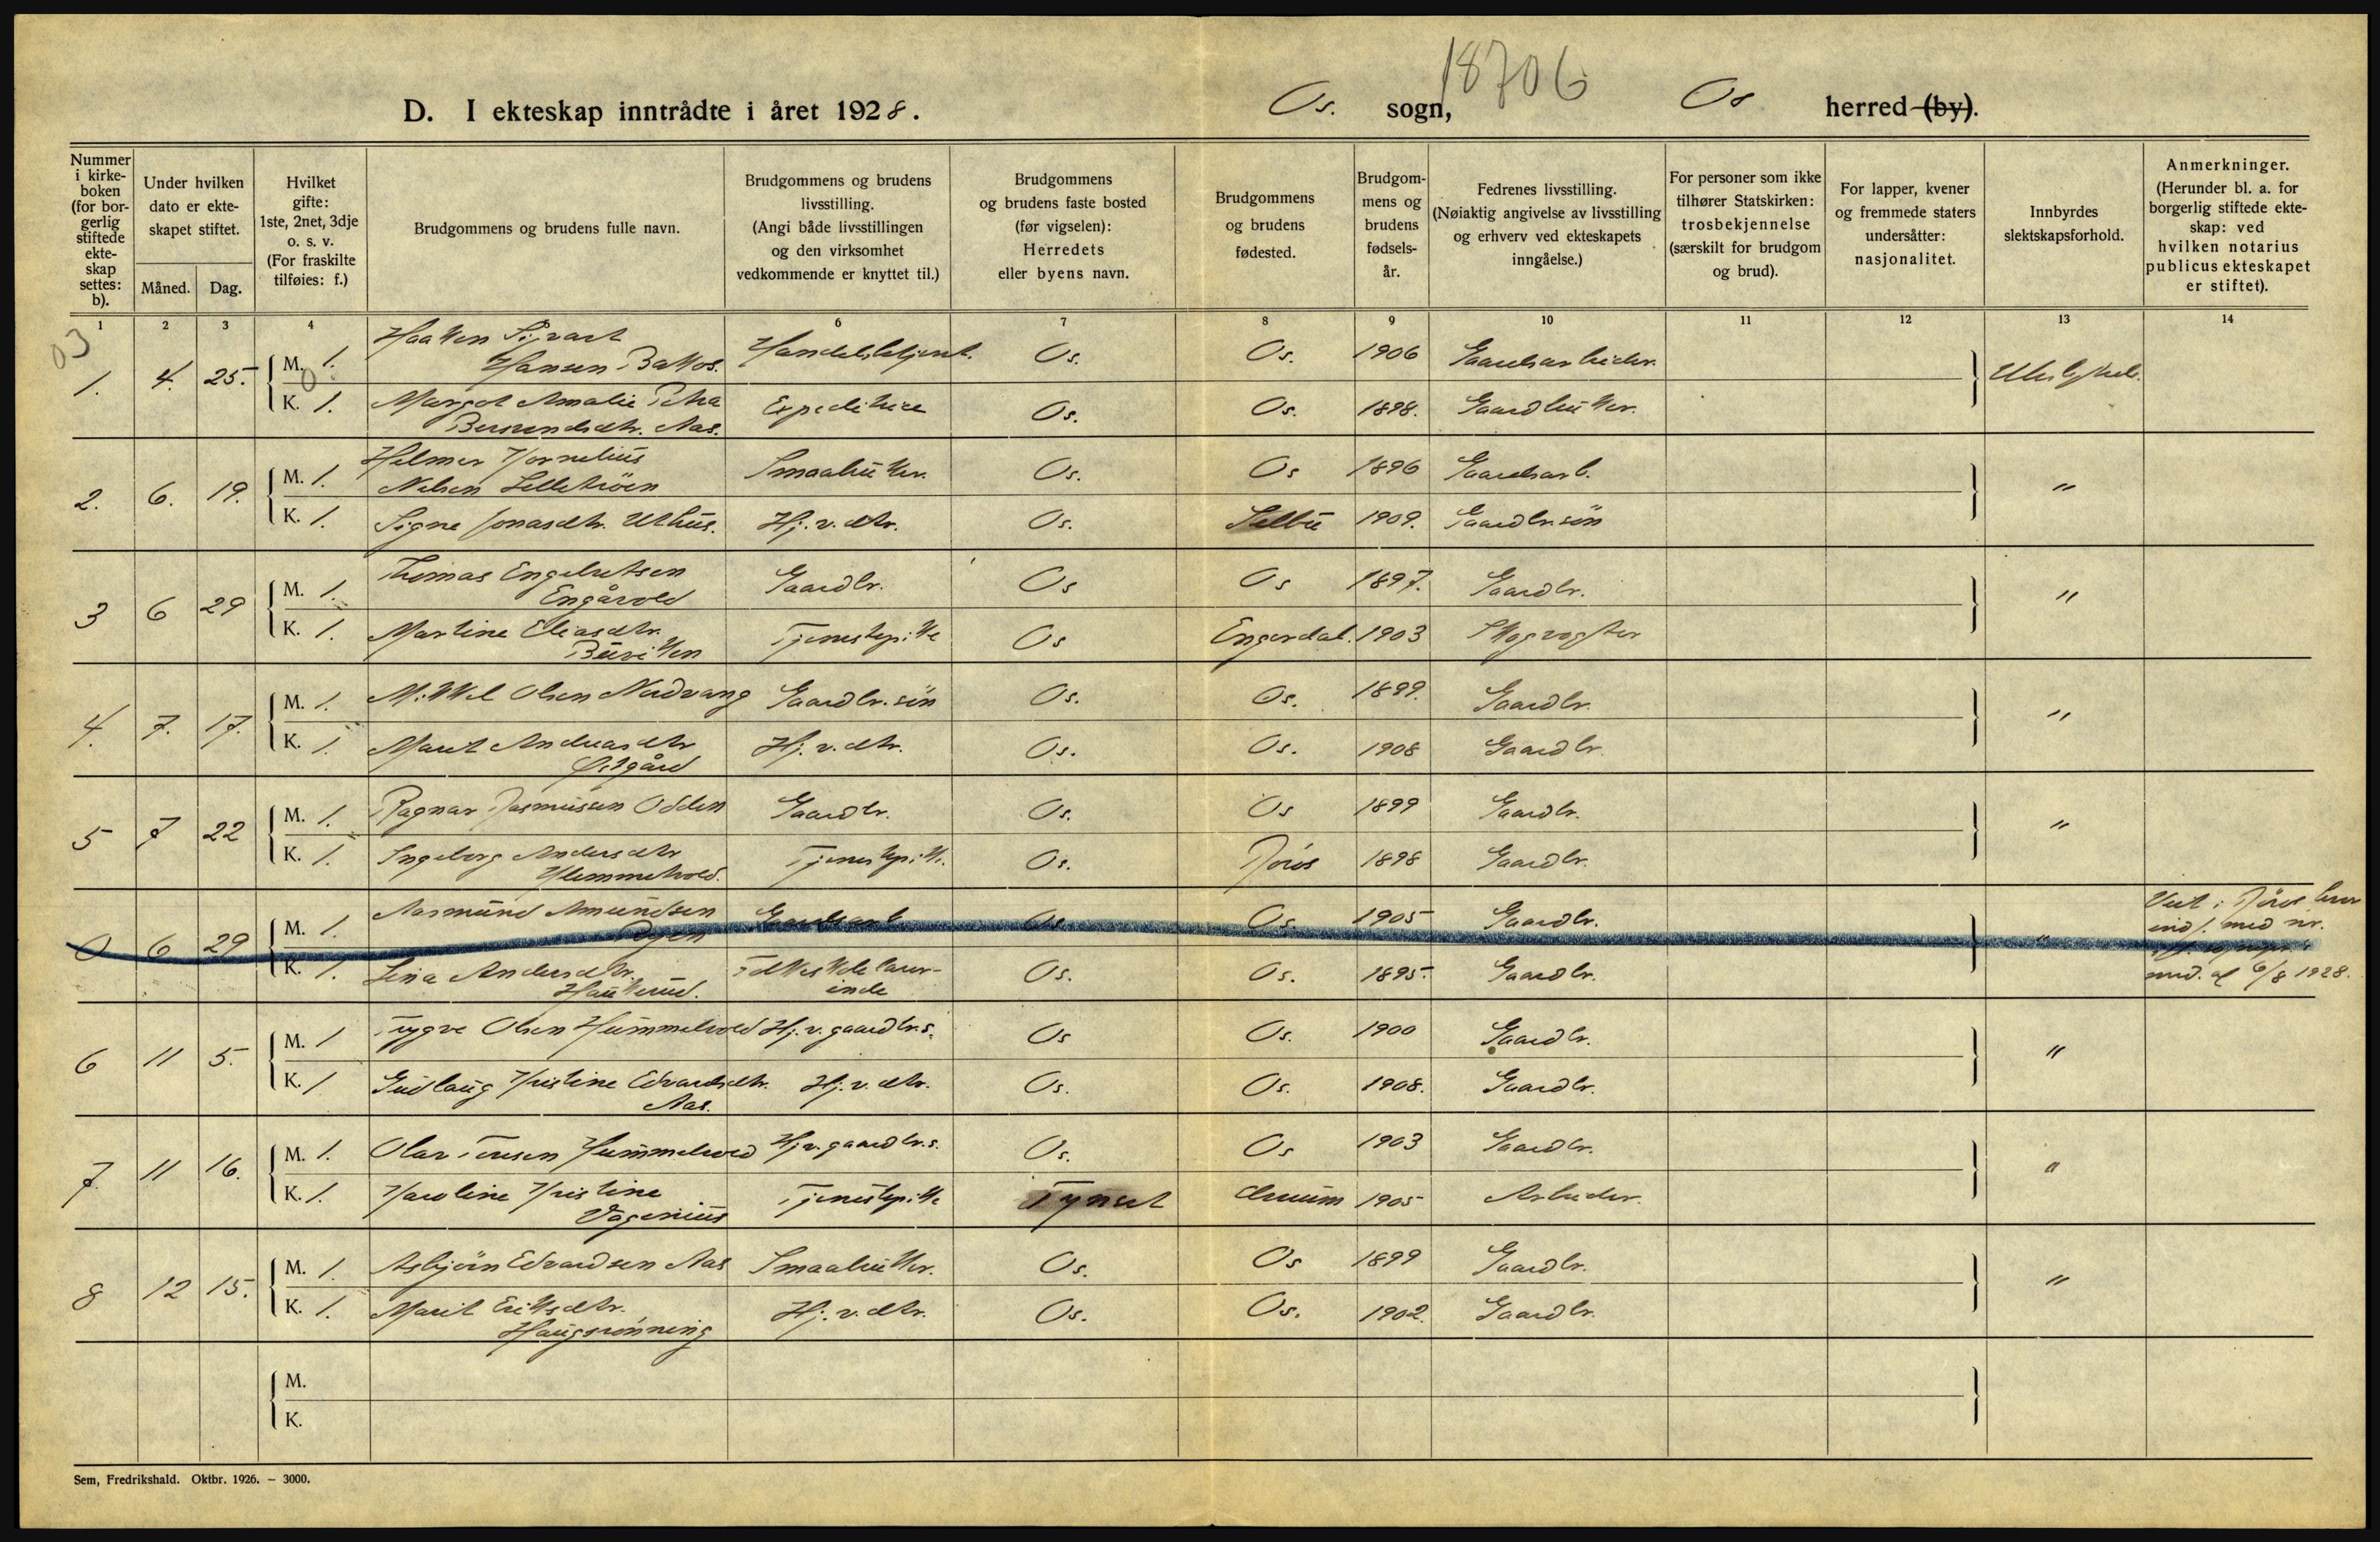 18706
D. I ekteskap inntrådte i året 1928.
Os. sogn, Os herred (by).
Nummer i kirkeboken (for borgerlig stiftede ekteskap settes: b).
Under hvilken dato er ekteskapet stiftet.
Måned. Dag.
Hvilket gifte: 1ste, 2net, 3dje o. s. v. (For fraskilte tilføies: f.)
Brudgommens og brudens fulle navn.
Brudgommens og brudens livsstilling. (Angi både livsstillingen og den virksomhet vedkommende er knyttet til.)
Brudgommens og brudens faste bosted (før vigselen): Herredets eller byens navn.
Brudgommens og brudens fødested.
Brudgommens og brudens fødselsår.
Fedrenes livsstilling. (Nøiaktig angivelse av livsstilling og erhverv ved ekteskapets inngåelse.)
For personer som ikke tilhører Statskirken: trosbekjennelse (særskilt for brudgom og brud).
For lapper, kvener og fremmede staters undersåtter: nasjonalitet.
Innbyrdes slektskapsforhold.
Anmerkninger. (Herunder bl. a. for borgerlig stiftede ekteskap: ved hvilken notarius publicus ekteskapet er stiftet).
1 2 3 4 5 6 7 8 9 10 11 12 13 14
03
1. 4. 25. M. 1. Haakon Sigvart Hansen Bakkos. Handelsbetjent. Os. Os. 1906 Gaardsarbeider. Ubeslektet.
0
K. 1. Margot Amalie Petra Berntsdtr. Aas. Expeditrice Os. Os. 1898. Gaardbruker.
2. 6. 19. M. 1. Hilmer Kornelius Nilsen Lilletrøen Smaabruker. Os. Os 1896 Gaardsarb. "
K. 1. Signe Jonasdtr. Uthus. Hj. v. dtr. Os. Selbu 1909. Gaardbr. søn
3 6 29 M. 1. Thomas Engebretsen Engåvold Gaardbr. Os Os 1897. Gaardbr. "
K. 1. Martine Eliasdtr. Burikken Tjenestepike Os Engerdal. 1903 Skogvogter
4. 7. 17. M. 1. Mikkel Olsen Nordvang Gaardbr. søn Os. Os. 1899. Gaardbr. "
K. 1. Marit Andreasdtr Østgård Hj. v. dtr. Os. Os. 1908 Gaardbr.
5 7 22 M. 1. Ragnar Rasmussen Odden Gaardbr. Os. Os 1899 Gaardbr. "
K. 1. Ingeborg Andersdtr Klemmetvold. Tjenestepike. Os. Røros 1898 Gaardbr.
0 6 29 M. 1. Aasmund Amundsen Gaardsarb Os. Os. 1905 Gaardbr. " Viet i Røros
K. 1. Lina Andersdtr. Haukerud. Folkeskolelærerinde Os. Os. 1895. Gaardbr. 6/8 1928.
6 11 5. M. 1 Trygve Olsen Hummelvold Hj. v. gaardbr. s. Os Os. 1900 Gaardbr. "
K. 1 Gudlaug Kristine Edvardsdtr. Aas. Hj. v. dtr. Os. Os. 1908. Gaardbr.
7. 11 16. M. 1. Olav Tønsen Hummelvold Hj. v. gaardbr. s. Os. Os 1903 Gaardbr. "
K. 1. Karoline Kristine Vagenius Tjenestepike Tynset 1905 Arbeider.
8 12 15. M. 1. Asbjörn Edvardsen Aas Smaabruker. Os. Os 1899 Gaardbr. "
K. 1. Marit Eriksdtr. Haugsrønning Hj. v. dtr. Os. Os. 1902. Gaardbr.
M.
K.
Sem, Fredrikshald. Oktbr. 1926. – 3000.